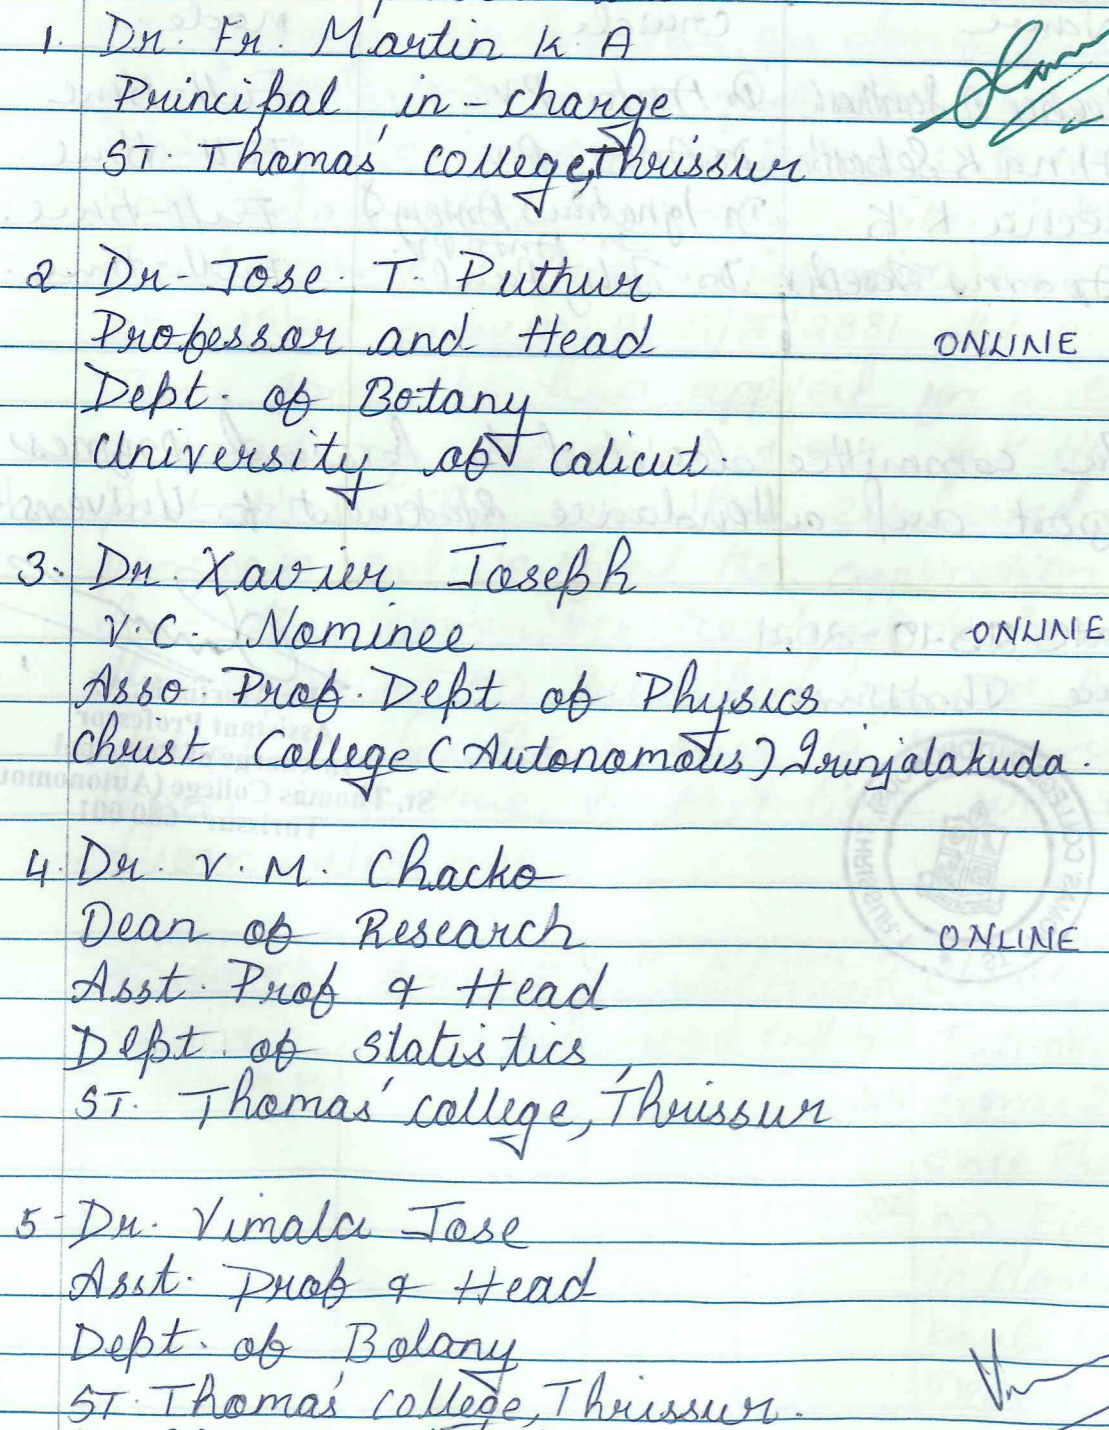 1. Dr. Fr. Martin K A
Principal in-charge
ST. Thomas' college, Thrissur
2. Dr. Jose. T. Puthur
Professor and Head ONLINE
Dept. of Botany
University of Calicut.
3. Dr. Xavier Joseph
V.C. Nominee ONLINE
Asso. Prof. Dept of Physics
Christ College (Autonomous) Irinjalakuda.
4. Dr. V. M. Chacko
Dean of Research ONLINE
Asst. Prof & Head
Dept. of Statistics,
ST. Thomas' college, Thrissur
5- Dr. Vimala Jose
Asst. Prof & Head
Dept. of Botany
ST. Thomas' college, Thrissur.